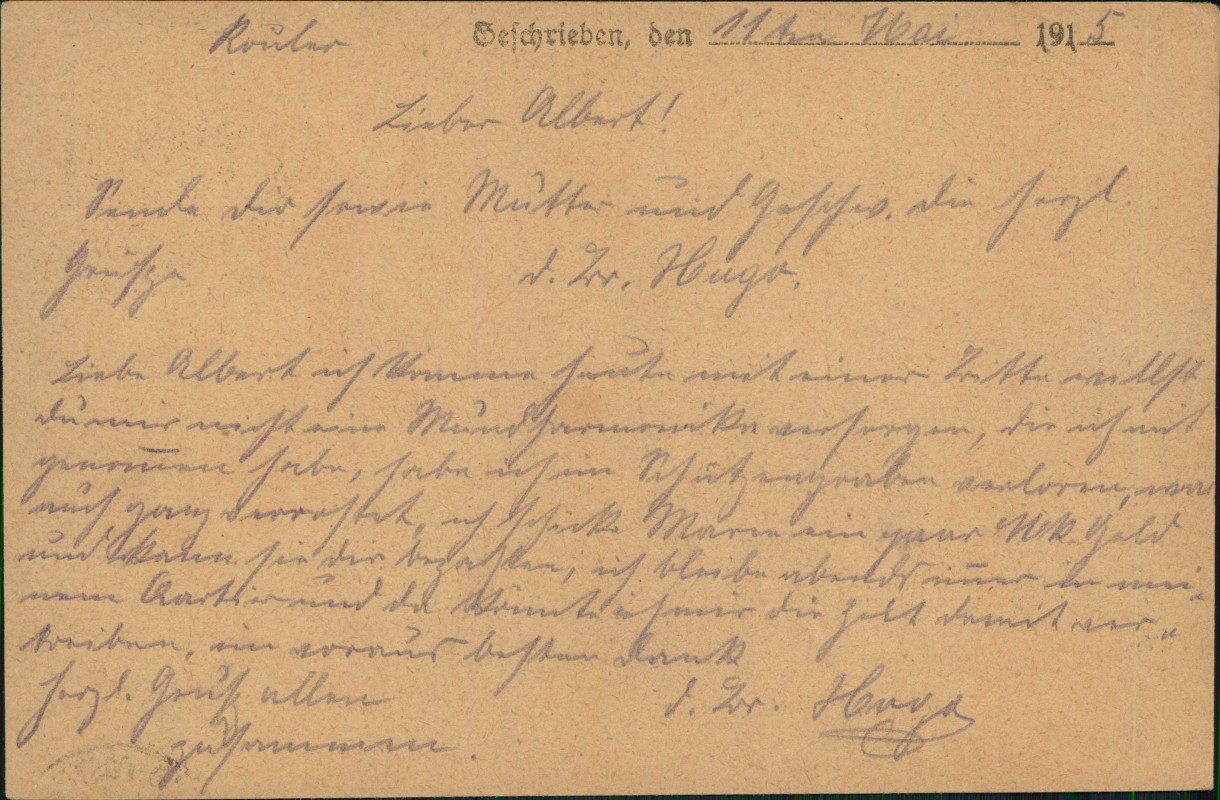 Rouler Geschrieben, den 11ten Mai 1915
Lieber Albert!
Sende dir sowie Mutter und Geschw. die herzl.
Grüsze d. Br. Hugo.
Liebe Albert ich komme heute mit einer Bitte willst
du mir nicht eine Mundharmonika versorgen, die ich mit
genom̅en habe, habe ich im Schützengraben verloren, war
auch ganz verrostet, ich schicke Marie ein paar Mk. Geld
und kann sie dir bezahlen, ich bleibe abends im̅er in mei-
nem Qartier und da könnte ich mir die Zeit damit ver-
treiben, im voraus besten Dank
herzl. Gruß allen d. Br. Hugo
zusammen.